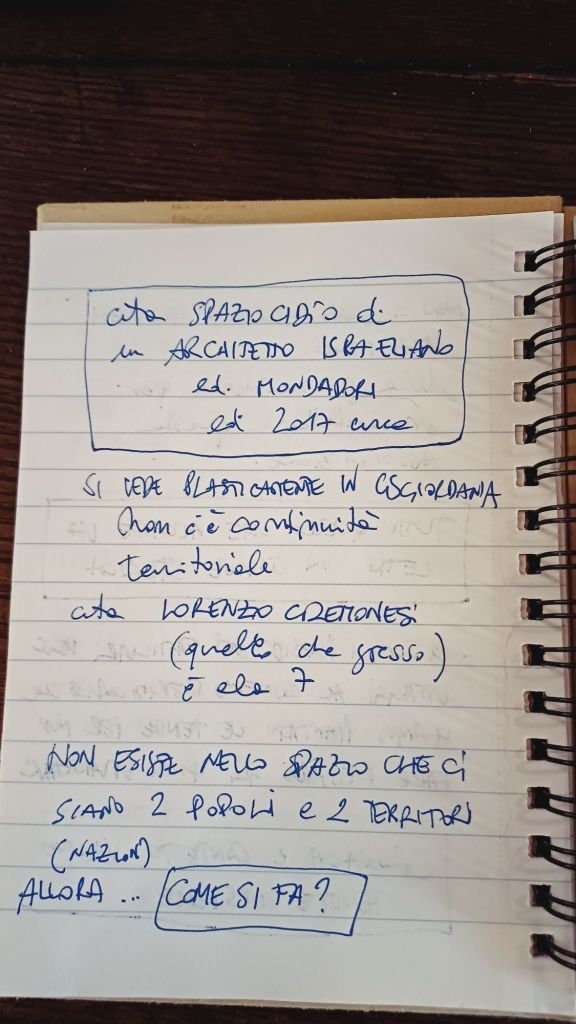 cita SPAZIOCIDIO di
un ARCHITETTO ISRAELIANO
ed. MONDADORI
ed 2017 circa
SI VEDE PLASTICAMENTE IN CISGIORDANIA
(non c'è continuità
territoriale
cita LORENZO CREMONESI
(quello che spesso)
è a la 7
NON ESISTE NELLO SPAZIO CHE CI
SIANO 2 POPOLI E 2 TERRITORI
(NAZIONI)
ALLORA ... COME SI FA?